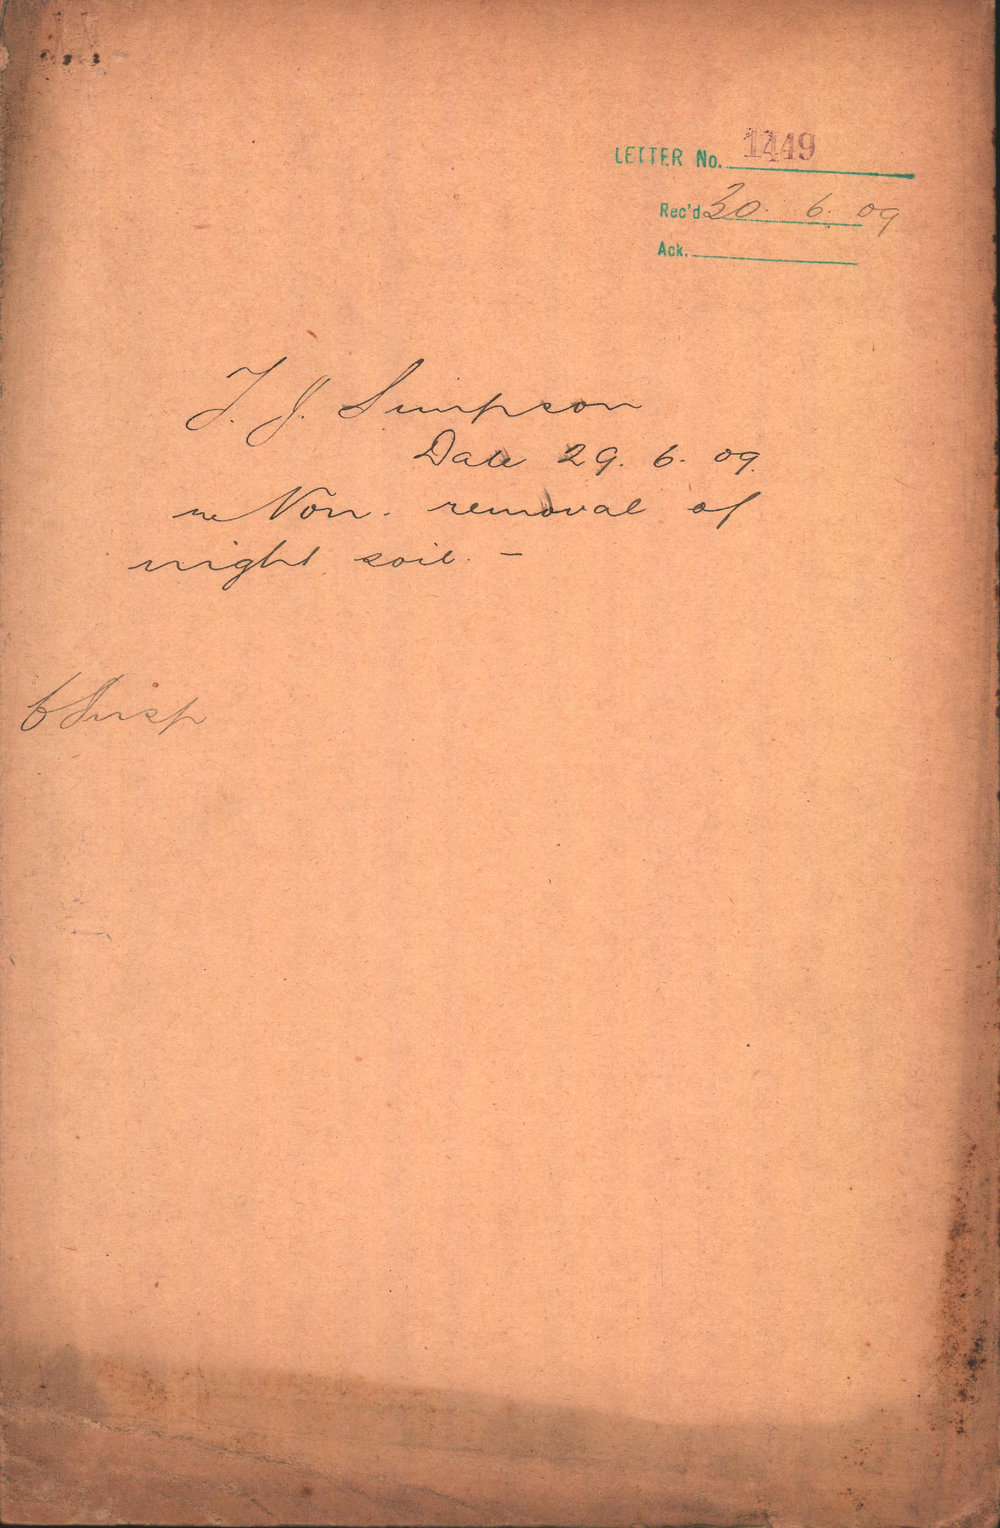 LETTER No. 1449
Rec'd 30. 6. 09
Ack.
T. J. Simpson
Date 29. 6. 09.
re Non. removal of
night soil. –
Insp